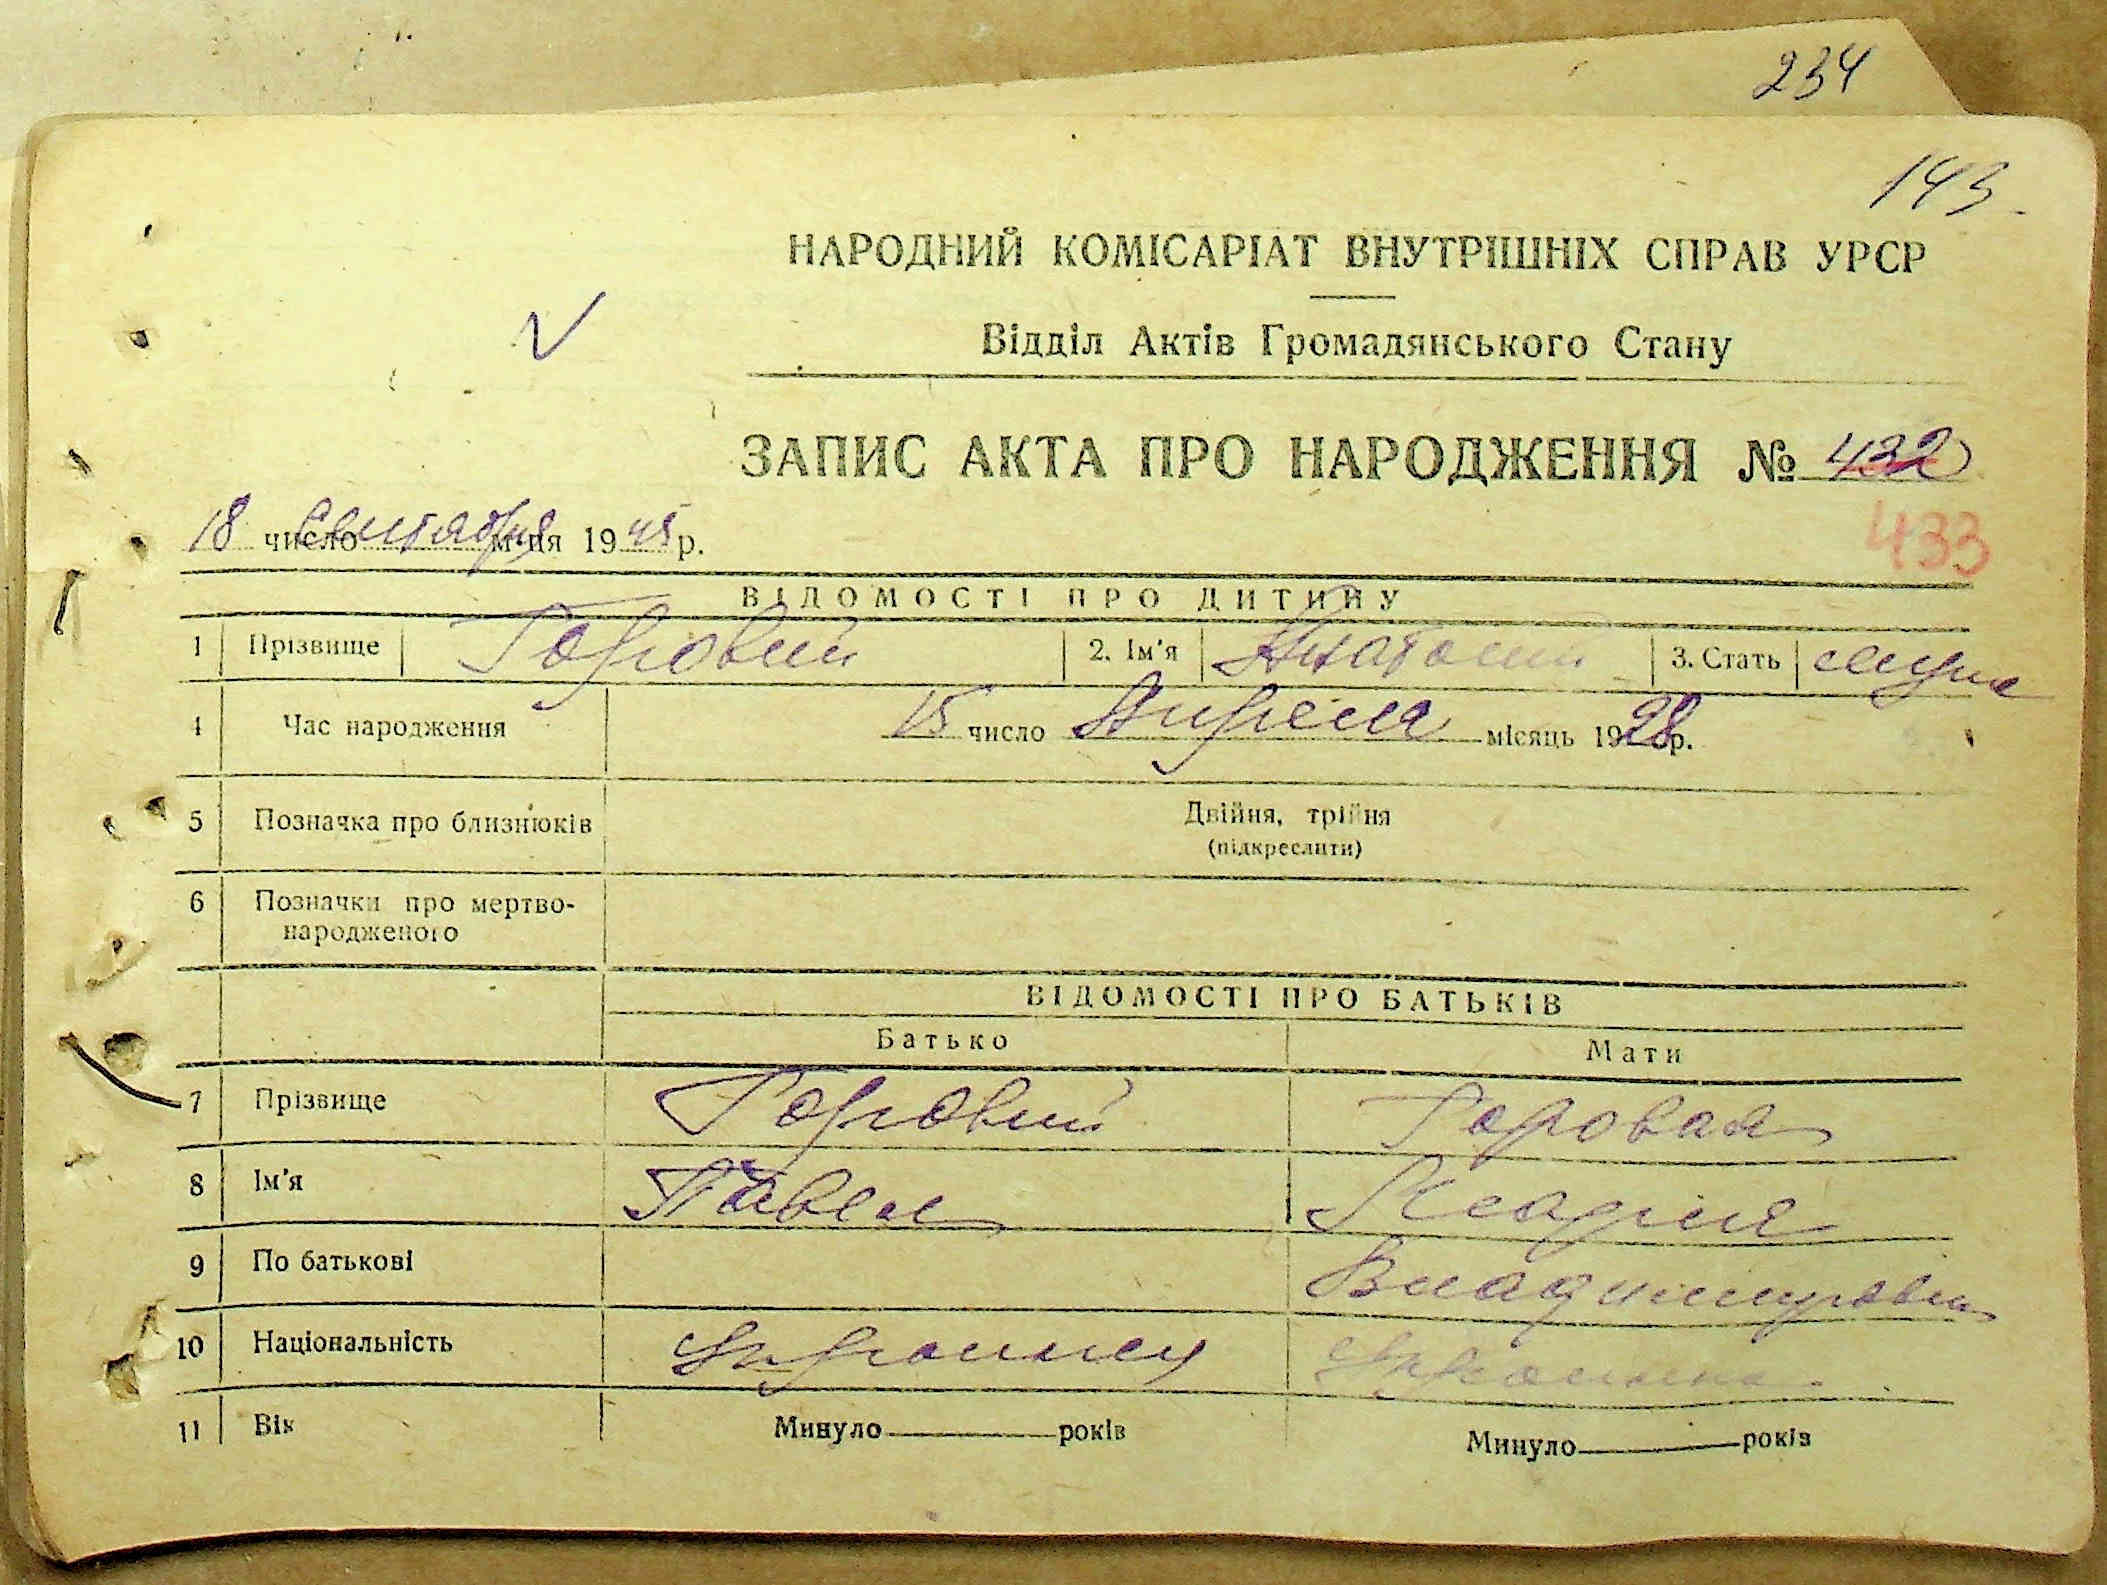 234
143
НАРОДНИЙ КОМІСАРІАТ ВНУТРІШНІХ СПРАВ УРСР
Відділ Актів Громадянського Стану
ЗАПИС АКТА ПРО НАРОДЖЕННЯ № 432
433
18 число Сентября м-ця 1945 р.
ВІДОМОСТІ ПРО ДИТИНУ
1 Прізвище Горовий 2. Ім'я Анатолий 3. Стать муж
4 Час народження 15 число Апреля місяць 1928 р.
5 Позначка про близнюків Двійня, трійня
(підкреслити)
6 Позначки про мертво-
народженого
ВІДОМОСТІ ПРО БАТЬКІВ
Батько Мати
7 Прізвище Горовий Горовая
8 Ім'я Павел Мария
9 По батькові Владимировна
10 Національність Украинец Украинка
11 Вік Минуло років Минуло років